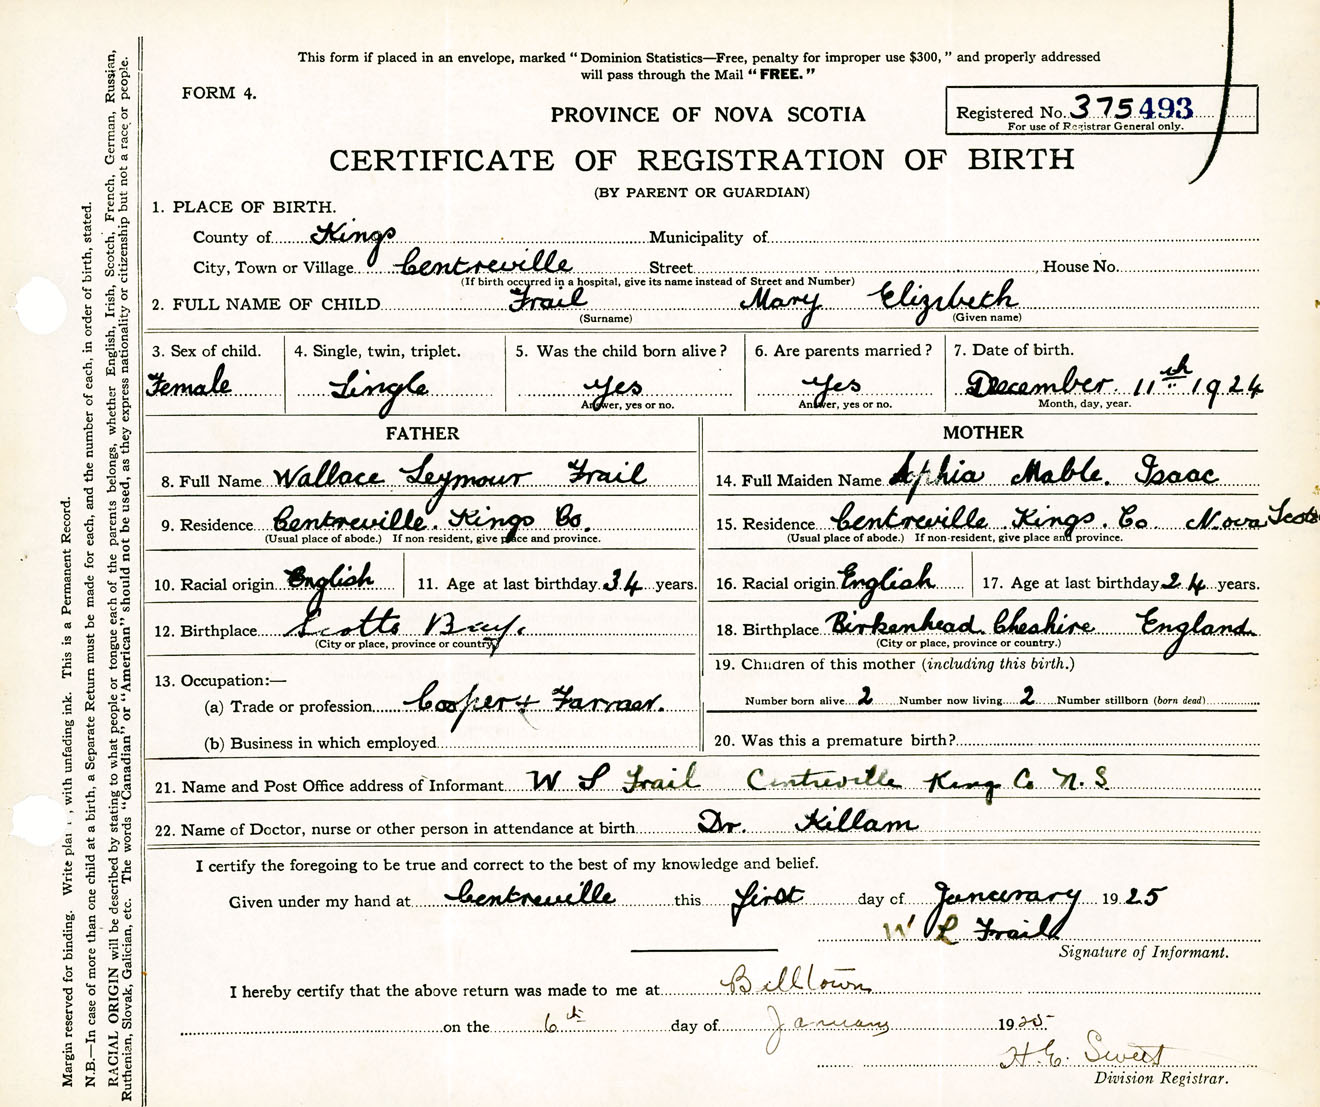 This form if placed in an envelope, marked "Dominion Statistics—Free, penalty for improper use $300," and properly addressed
will pass through the Mail "FREE."
FORM 4.
PROVINCE OF NOVA SCOTIA
Registered No. 375493
For use of Registrar General only.
CERTIFICATE OF REGISTRATION OF BIRTH
(BY PARENT OR GUARDIAN)
1. PLACE OF BIRTH.
County of Kings Municipality of
City, Town or Village Centreville Street House No.
(If birth occurred in a hospital, give its name instead of Street and Number)
2. FULL NAME OF CHILD Frail Mary Elizabeth
(Surname) (Given name)
3. Sex of child. 4. Single, twin, triplet. 5. Was the child born alive? 6. Are parents married? 7. Date of birth.
Female Single Yes Yes December 11th 1924
Answer, yes or no. Answer, yes or no. Month, day, year.
FATHER MOTHER
8. Full Name Wallace Seymour Frail 14. Full Maiden Name Mable. Isaac
9. Residence Centreville. Kings Co. 15. Residence Centreville Kings. Co Nova Scotia
(Usual place of abode.) If non resident, give place and province. (Usual place of abode.) If non-resident, give place and province.
10. Racial origin English 11. Age at last birthday 34 years. 16. Racial origin English 17. Age at last birthday 24 years.
12. Birthplace Scotts Bay. 18. Birthplace Birkenhead Cheshire England
(City or place, province or country) (City or place, province or country.)
13. Occupation:— 19. Children of this mother (including this birth.)
(a) Trade or profession Cooper + Farmer. Number born alive 2 Number now living 2 Number stillborn (born dead)
(b) Business in which employed 20. Was this a premature birth?
21. Name and Post Office address of Informant W S Frail Centreville King Co N.S
22. Name of Doctor, nurse or other person in attendance at birth Dr. Killam
I certify the foregoing to be true and correct to the best of my knowledge and belief.
Given under my hand at Centreville this first day of Janurary 1925
W S Frail
Signature of Informant.
I hereby certify that the above return was made to me at Billtown
on the 6th day of January 1925
H. E. Sweet
Division Registrar.
Margin reserved for binding. Write plai , with unfading ink. This is a Permanent Record.
N.B.—In case of more than one child at a birth, a Separate Return must be made for each, and the number of each, in order of birth, stated.
RACIAL ORIGIN will be described by stating to what people or tongue each of the parents belongs, whether English, Irish, Scotch, French, German, Russian,
Ruthenian, Slovak, Galician, etc. The words "Canadian" or "American" should not be used, as they express nationality or citizenship but not a race or people.